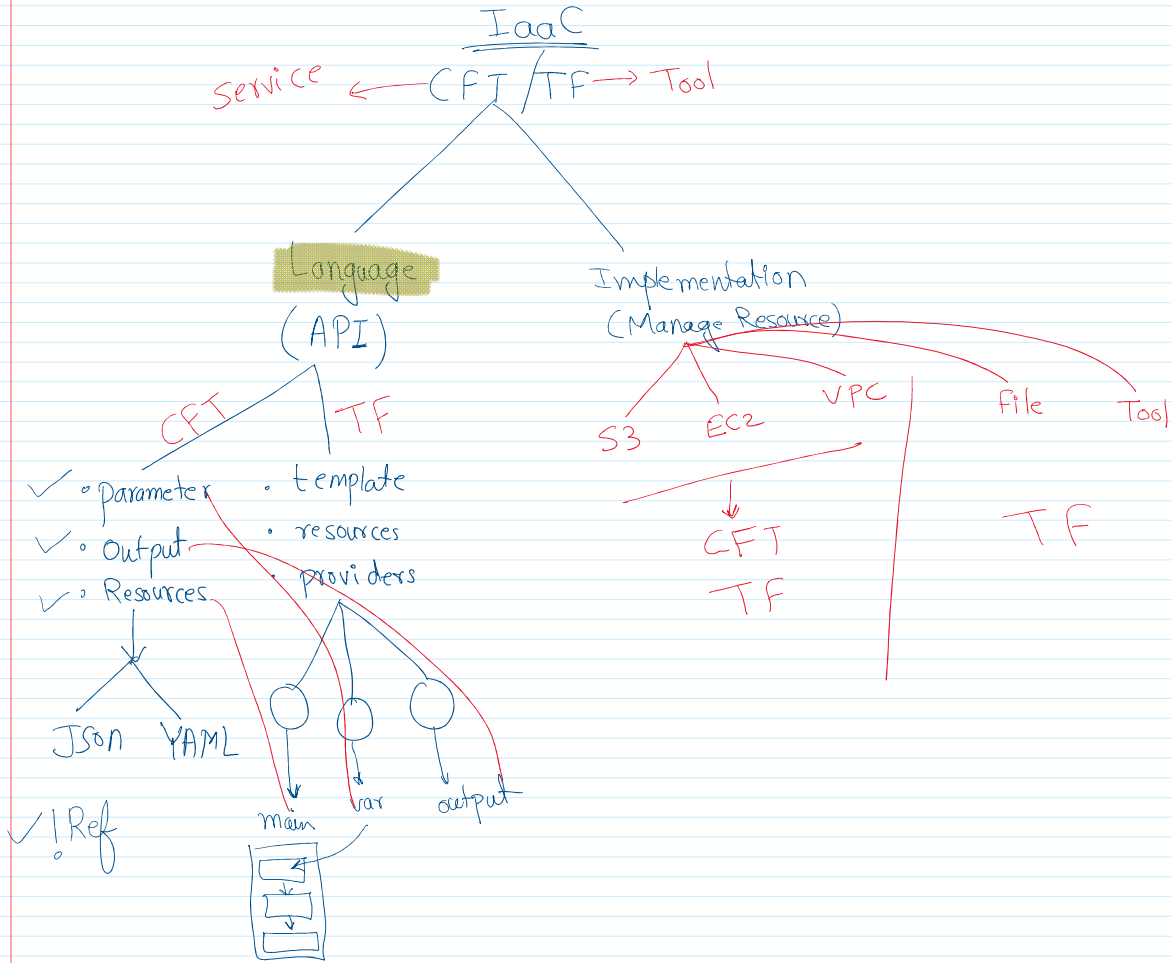 IaaC
Service ← CFT / TF → Tool
Language
(API)
Implementation
(Manage Resource)
CFT
TF
S3
EC2
VPC
file
Tool
✓ • Parameter
✓ • Output
✓ • Resources
• template
• resources
• providers
CFT
TF
TF
Json
YAML
main
var
output
✓ !Ref